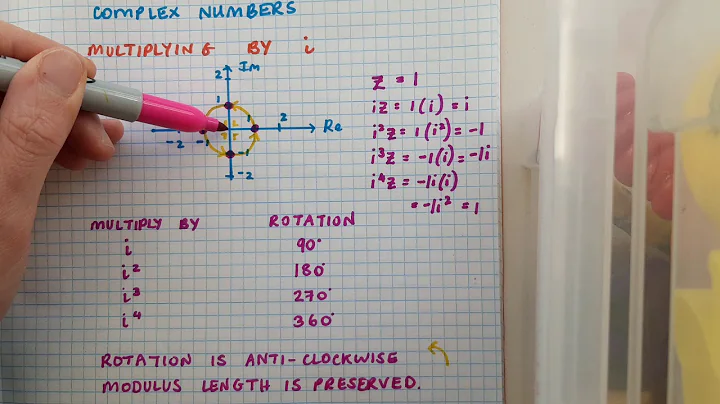 COMPLEX NUMBERS
MULTIPLYING BY i
Im
2
1
1
2
Re
-2
-1
-1
-2
z = 1
iz = 1(i) = i
i²z = 1(i²) = -1
i³z = -1(i) = -1i
i⁴z = -1i(i)
= -1i² = 1
MULTIPLY BY ROTATION
i 90°
i² 180°
i³ 270°
i⁴ 360°
ROTATION IS ANTI-CLOCKWISE
MODULUS LENGTH IS PRESERVED.